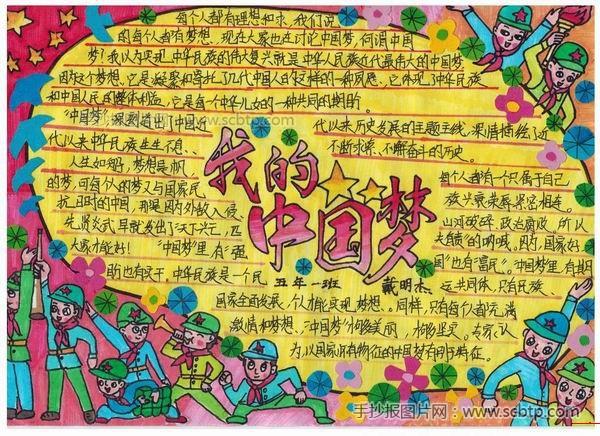 每个人都有理想和追求,我们说
的每个人都有梦想。现在大家也在讨论中国梦,何谓中国
梦?我以为实现中华民族的伟大复兴就是中华人民族近代最伟大的中国梦
因为这个梦想,它是凝聚和寄托了几代中国人的这样的一种夙愿,它体现了中华民族
和中国人民的整体利益,它是每个中华儿女的一种共同的期盼。
“中国梦”深刻道出了中国近
代以来历史发展的主题主线,深情描绘了近
代以来中华民族生生不息、
不断求索、不懈奋斗的历史。
人生如舟,梦想是帆
每个人都有一个只属于自己
的梦,可每个人的梦又与国家民
族兴衰荣辱紧密相连。
抗日时的中国,那是因为外敌入侵、
山河破碎、政治腐败,所以
先贤仪式早就发出了“天下兴亡,匹
夫有责”的呐喊。因为,国家好
大家才能好!
“中国梦”里有“强
国”也有“富民”。“中国梦”里有期
盼也有实干,中华民族是一个民
运共同体,只有民族
我的
中国梦
五年一班 戴明杰
国家全面发展,个人才能实现梦想。同样,只有每个人都充满
激情和梦想,“中国梦”才够美丽,才够坚实。专家认
为,以国家所有特征的中国梦有明显特征。
手抄报图片网:www.scbtp.com
www.scbtp.com